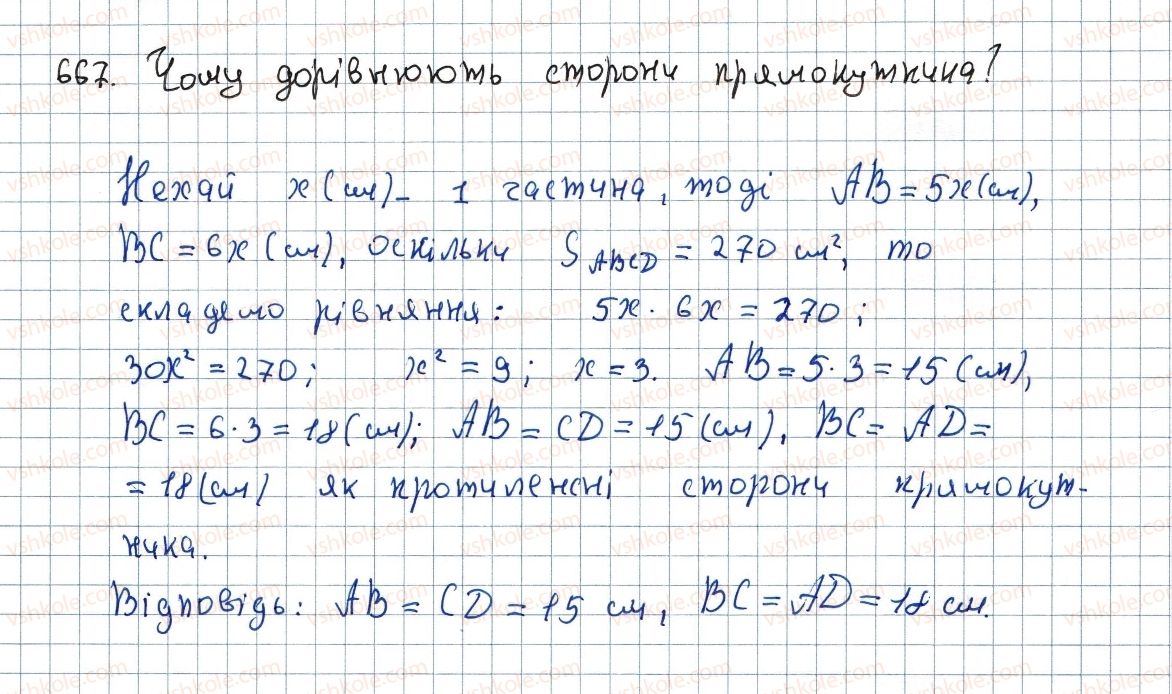 667. Чому дорівнюють сторони прямокутника?
Нехай x (см) – 1 частина, тоді AB = 5x (см),
BC = 6x (см), оскільки S ABCD = 270 см², то
складемо рівняння: 5x · 6x = 270;
30x² = 270; x² = 9; x = 3. AB = 5·3 = 15 (см),
BC = 6·3 = 18 (см); AB = CD = 15 (см), BC = AD =
= 18 (см) як протилежні сторони прямокут-
ника.
Відповідь: AB = CD = 15 см, BC = AD = 18 см.